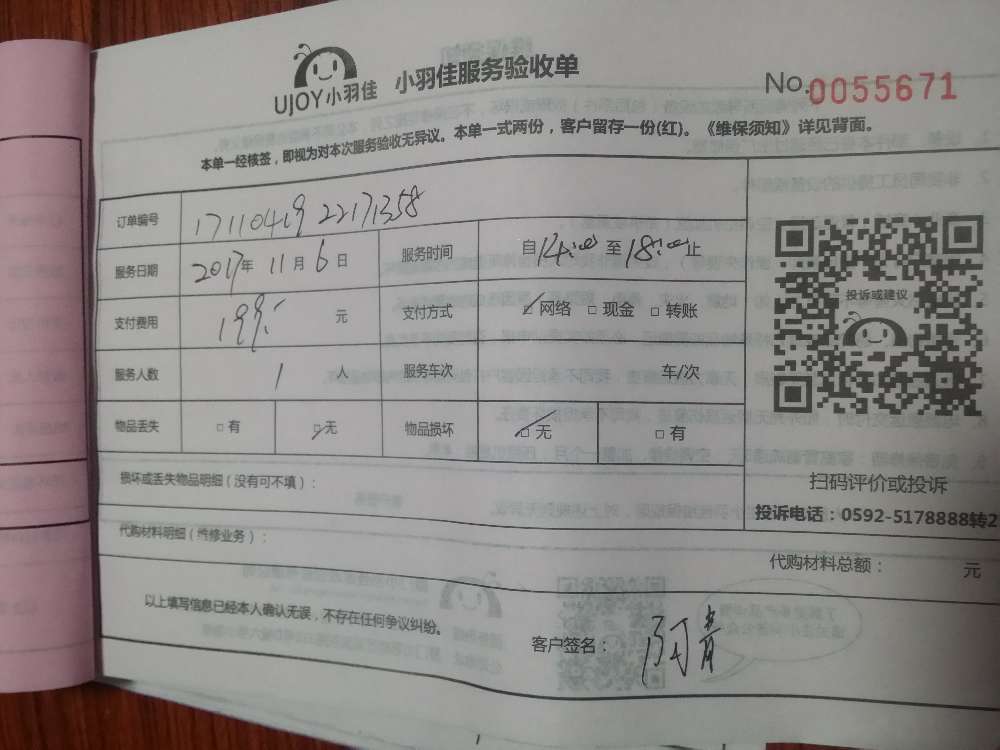 UJOY小羽佳 小羽佳服务验收单
No.0055671
本单一经核签，即视为对本次服务验收无异议。本单一式两份，客户留存一份(红)。《维保须知》详见背面。
订单编号 1711041922171358
服务日期 2017年 11月 6日 服务时间 自14:00至18:00止
支付费用 199.- 元 支付方式 网络 现金 转账
服务人数 1 人 服务车次 车/次
物品丢失 有 无 物品损坏 无 有
损坏或丢失物品明细(没有可不填)：
代购材料明细(维修业务)：
代购材料总额： 元
以上填写信息已经本人确认无误，不存在任何争议纠纷。
客户签名： 阿青
投诉或建议
扫码评价或投诉
投诉电话：0592-5178888转2